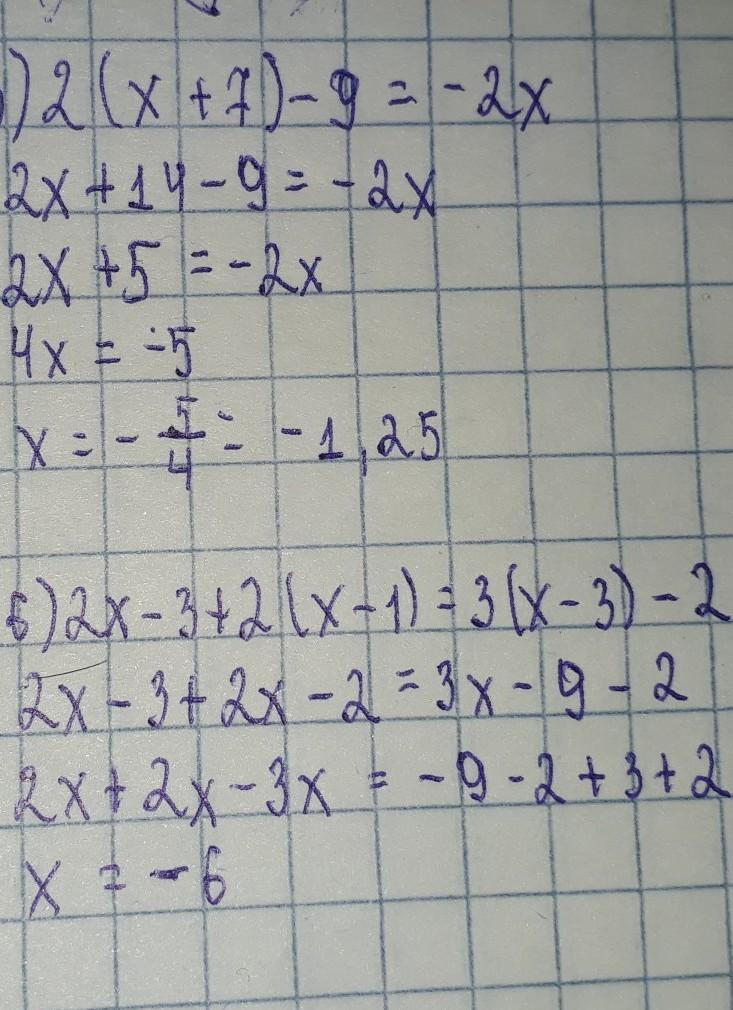 ) 2(x+7)-9=-2x
2x+14-9=-2x
2x+5=-2x
4x=-5
x=-5/4=-1,25
б) 2x-3+2(x-1)=3(x-3)-2
2x-3+2x-2=3x-9-2
2x+2x-3x=-9-2+3+2
x=-6